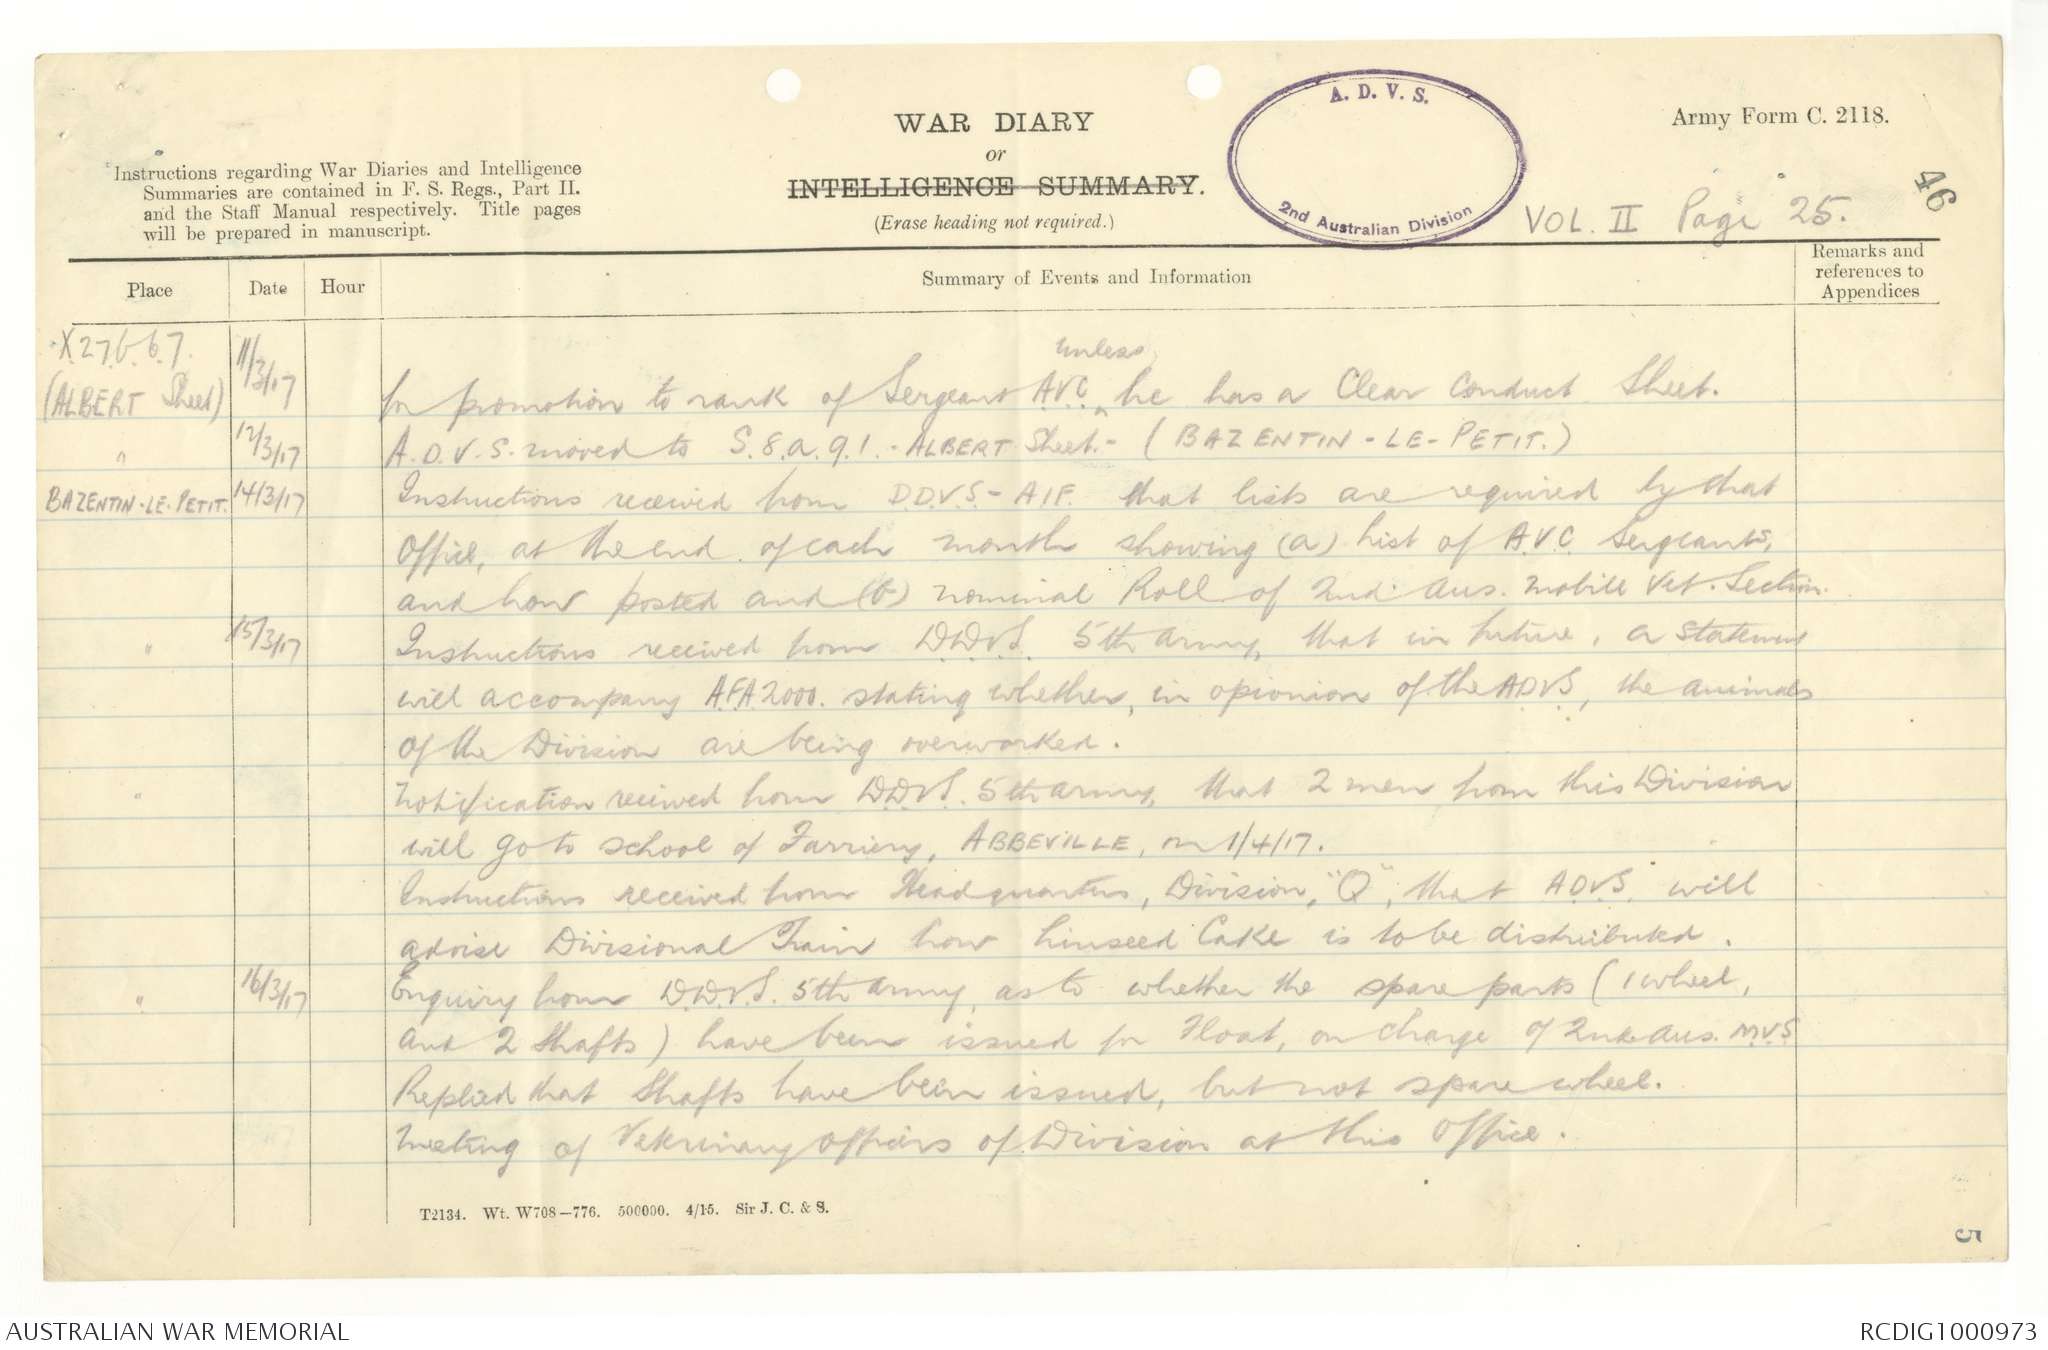 Army Form C. 2118.
WAR DIARY
or
INTELLIGENCE SUMMARY.
(Erase heading not required.)
Instructions regarding War Diaries and Intelligence
Summaries are contained in F. S. Regs., Part II.
and the Staff Manual respectively. Title pages
will be prepared in manuscript.
A. D. V. S.
2nd Australian Division
VOL. II Page 25.
46
Place Date Hour Summary of Events and Information Remarks and references to Appendices
X.27.b.6.7. 11/3/17 unless
(ALBERT Sheet) for promotion to rank of Sergeant A.V.C. ^ he has a Clear Conduct Sheet.
" 12/3/17 A.D.V.S. moved to S.8.a.9.1. - ALBERT Sheet. - (BAZENTIN-LE-PETIT.)
BAZENTIN-LE-PETIT. 14/3/17 Instructions received from D.D.V.S - AIF. that lists are required by that
Office, at the end of each month showing (a) List of A.V.C. Sergeants,
and how posted and (b) nominal Roll of 2nd Aus. Mobile Vet. Section.
" 15/3/17 Instructions received from D.D.V.S. 5th Army, that in future, a statement
will accompany A.F.A.2000. stating whether, in opionion of the A.D.V.S, the animals
of the Division are being overworked.
" Notification received from D.D.V.S. 5th Army, that 2 men from this Division
will go to school of Farriery, ABBEVILLE, on 1/4/17.
Instructions received from Headquarters, Division, "Q", that A.D.V.S. will
advise Divisional Train how Linseed Cake is to be distributed.
" 16/3/17 Enquiry from D.D.V.S. 5th Army, as to whether the spare parts (1 wheel,
and 2 Shafts) have been issued for Float, on charge of 2nd Aus. M.V.S
Replied that Shafts have been issued, but not spare wheel.
Meeting of Veterinary Officers of Division at this Office.
T2134. Wt. W708—776. 500000. 4/15. Sir J. C. & S.
5
AUSTRALIAN WAR MEMORIAL
RCDIG1000973